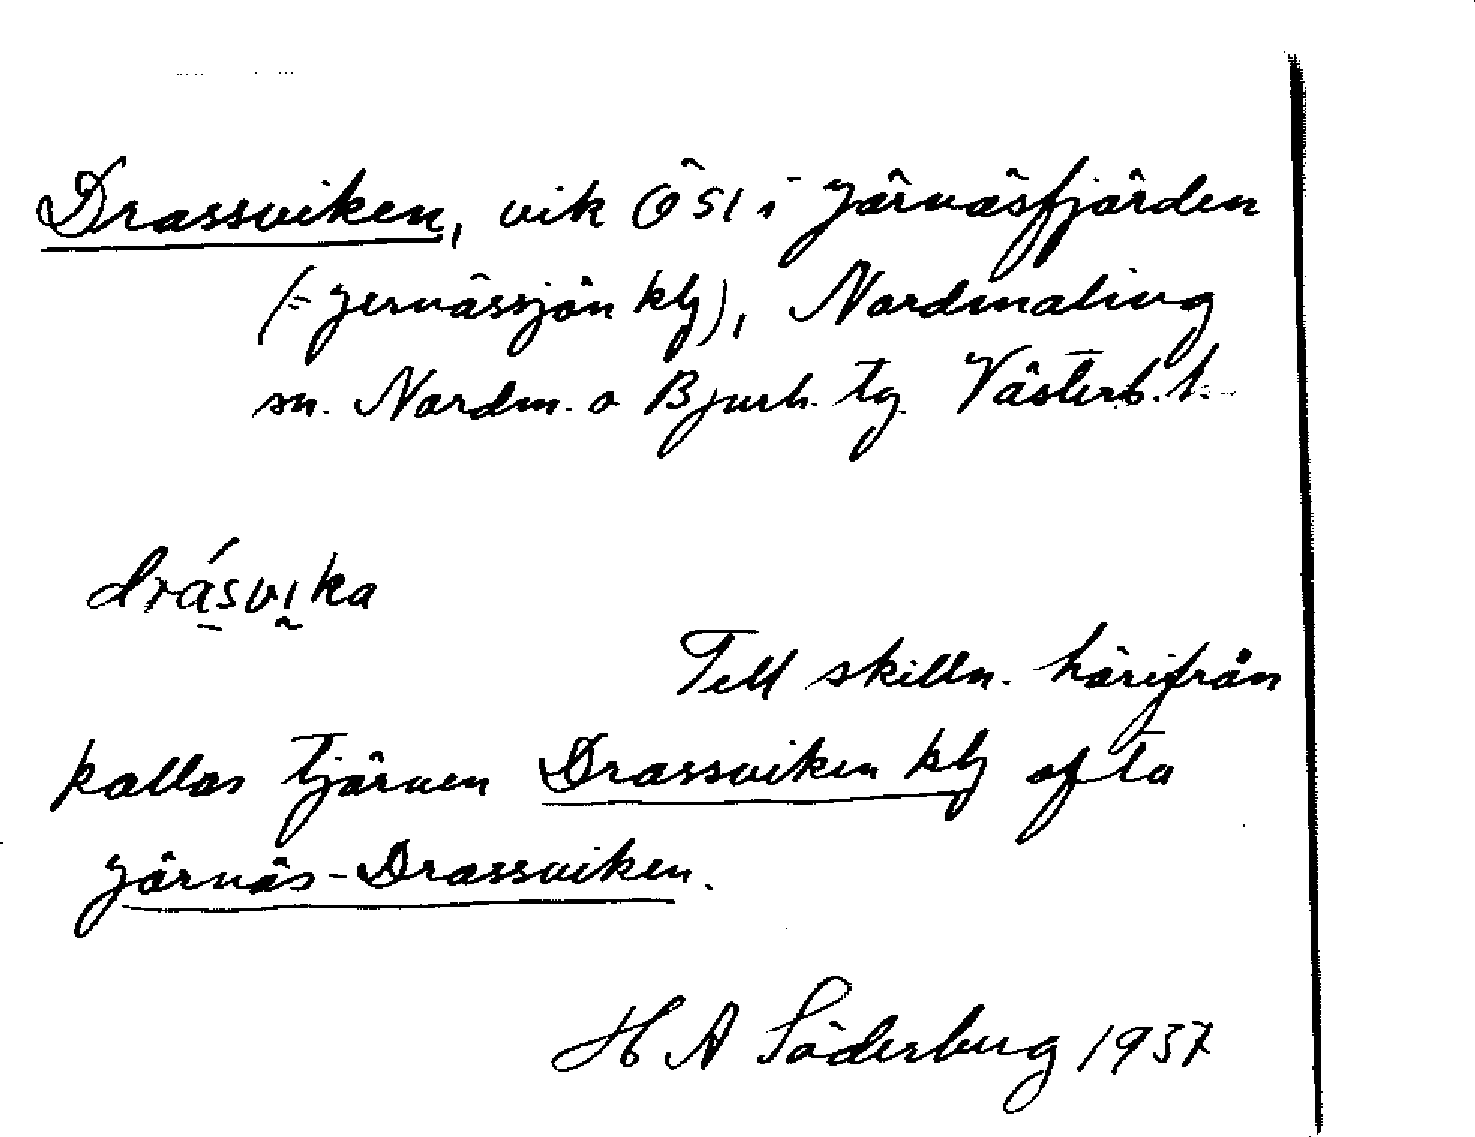 Drassviken, vik ÖSI i Järnäsfjärden
(= Jernässjön kbj), Nordmaling
sn. Nordm. o Bjurh. tg. Västerb. l.
drásvika
Till skilln. härifrån
kallas tjärnen Drassviken kbj ofta
Järnäs-Drassviken.
H A Söderberg 1937